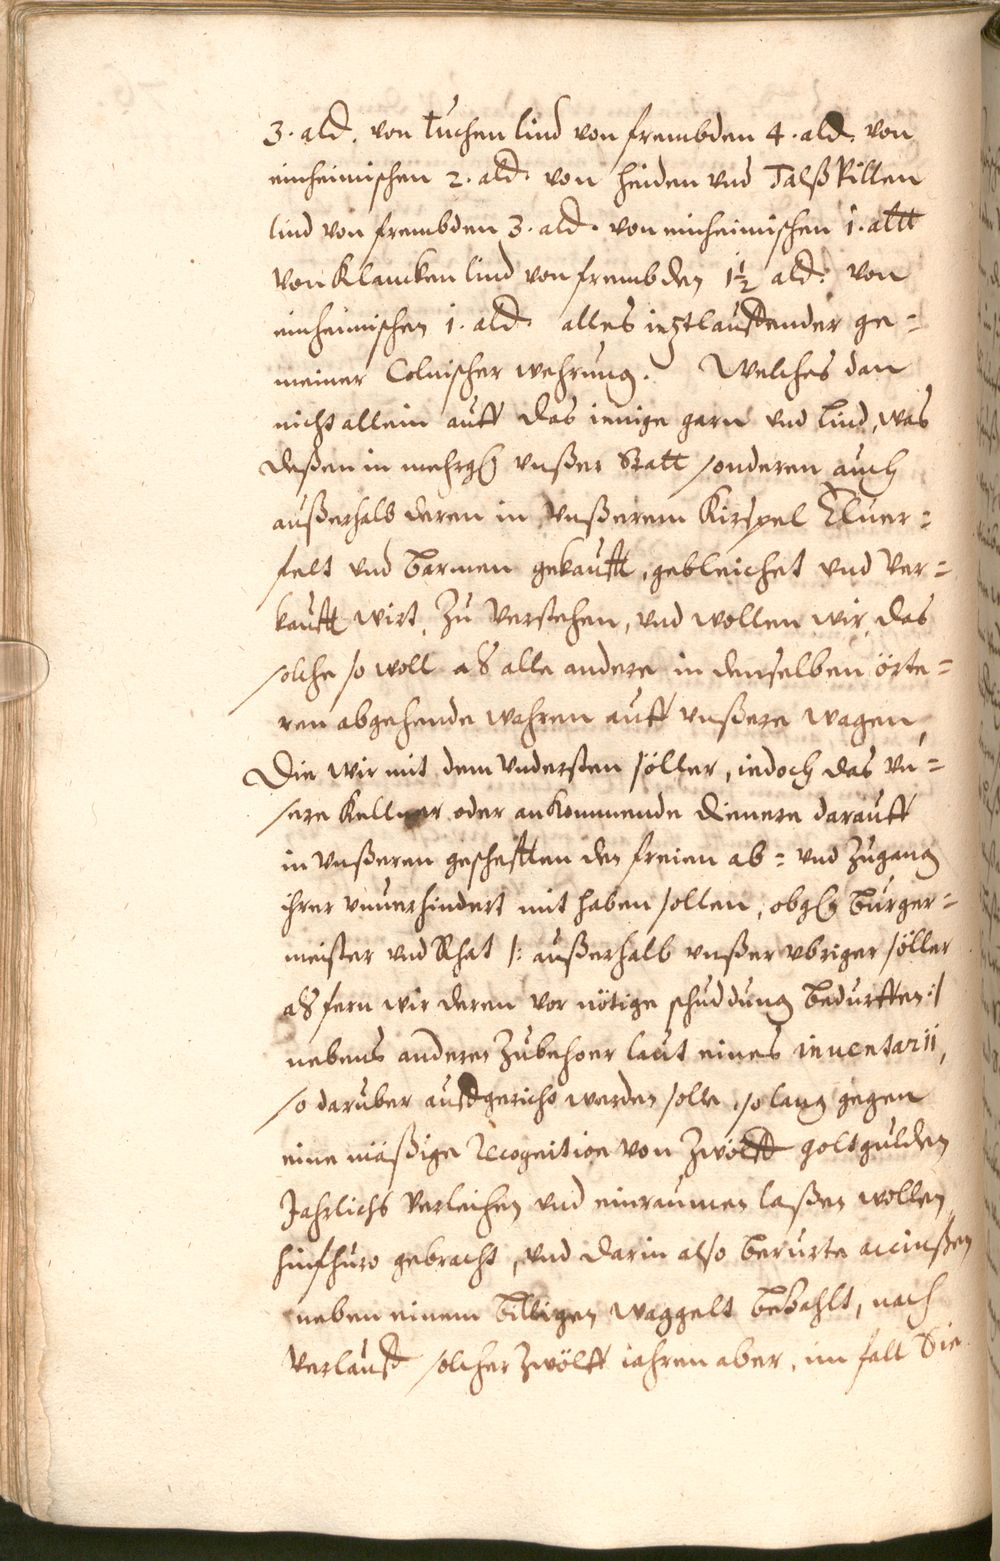 3. ald. von tuchen lind von frembden 4. ald. von
einheimischen 2. ald. von heiden vnd
lind von frembden 3. ald. von einheimischen 1. altt
von Klancken lind von frembden 1½ ald. von
einheimischen 1. ald. alles ietztlauffender ge=
meiner Colnischer wehrung. Welches dan
nicht allein auff das ienige garn vnd lind, was
deßen in mehrg vnßer Statt sonderen auch
außerhalb deren in vnßerem Kirspel Eluer=
felt vnd Barmen gekaufft, gebleichet vnd ver=
kaufft wirt, Zu verstehen, vnd wollen wir, das
solche so woll alß alle andere in denselben örte=
ren abgehende wahren auff vnßere wagen,
Die wir mit dem vndersten söller, iedoch das vn=
sere Kellner oder ankommende Dienere darauff
in vnßeren geschefften den freien ab= vnd Zugang
ihrer vnuerhindert mit haben sollen, obg Burger=
meister vnd Rhat /: außerhalb vnßer vbriger söller
alß fern wir deren vor nötige schuddung bedurfften :/
nebens anderer Zubehoer laut eines inuentarii,
so daruber auffgericht werden solle, so lang gegen
eine mäßige Recognition von Zwölff goltgulden
Jahrlichs verleihen vnd einraumen laßen wollen,
hinfhuro gebracht, vnd darin also berurte accinßen
neben einem billigen waggelt bezahlt, nach
verlauff solcher Zwölff iahren aber, im fall Sie